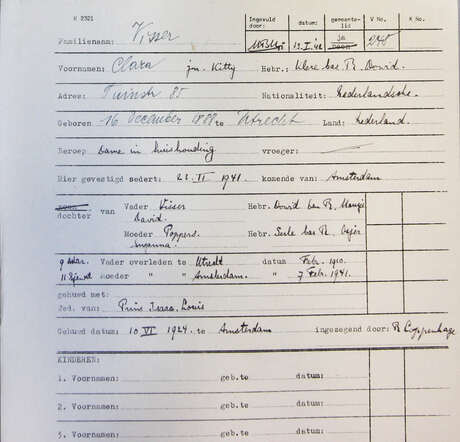 H 2321 Ingevuld door: datum: gemeente-lid V No. K No.
Familienaam: Visser 13.I.'42 ja 240
Voornamen: Clara jn. Kitty Hebr.: Klere bas R. Dowid
Adres: Tuinstr 85 Nationaliteit: Nederlandsche.
Geboren 16 December 1888 te Utrecht Land: Nederland.
Beroep Dame in huishouding vroeger:
Hier gevestigd sedert: 1941 komende van: Amsterdam
zoon
dochter van Vader Visser Hebr. Dowid bas R.
David.
Moeder Poppers Hebr. Serle bas R.
Susanna.
9 Adar. Vader overleden te Utrecht datum Febr. 1910.
11 Moeder " " Amsterdam. " 7 Feb. 1941.
gehuwd met:
Wed. van: Prins Isaac Louis
Gehuwd datum: 10 VI 1924 te Amsterdam ingezegend door: R Coppenhage
KINDEREN:
1. Voornamen: geb.te datum:
2. Voornamen: geb.te datum:
3. Voornamen: geb.te datum: